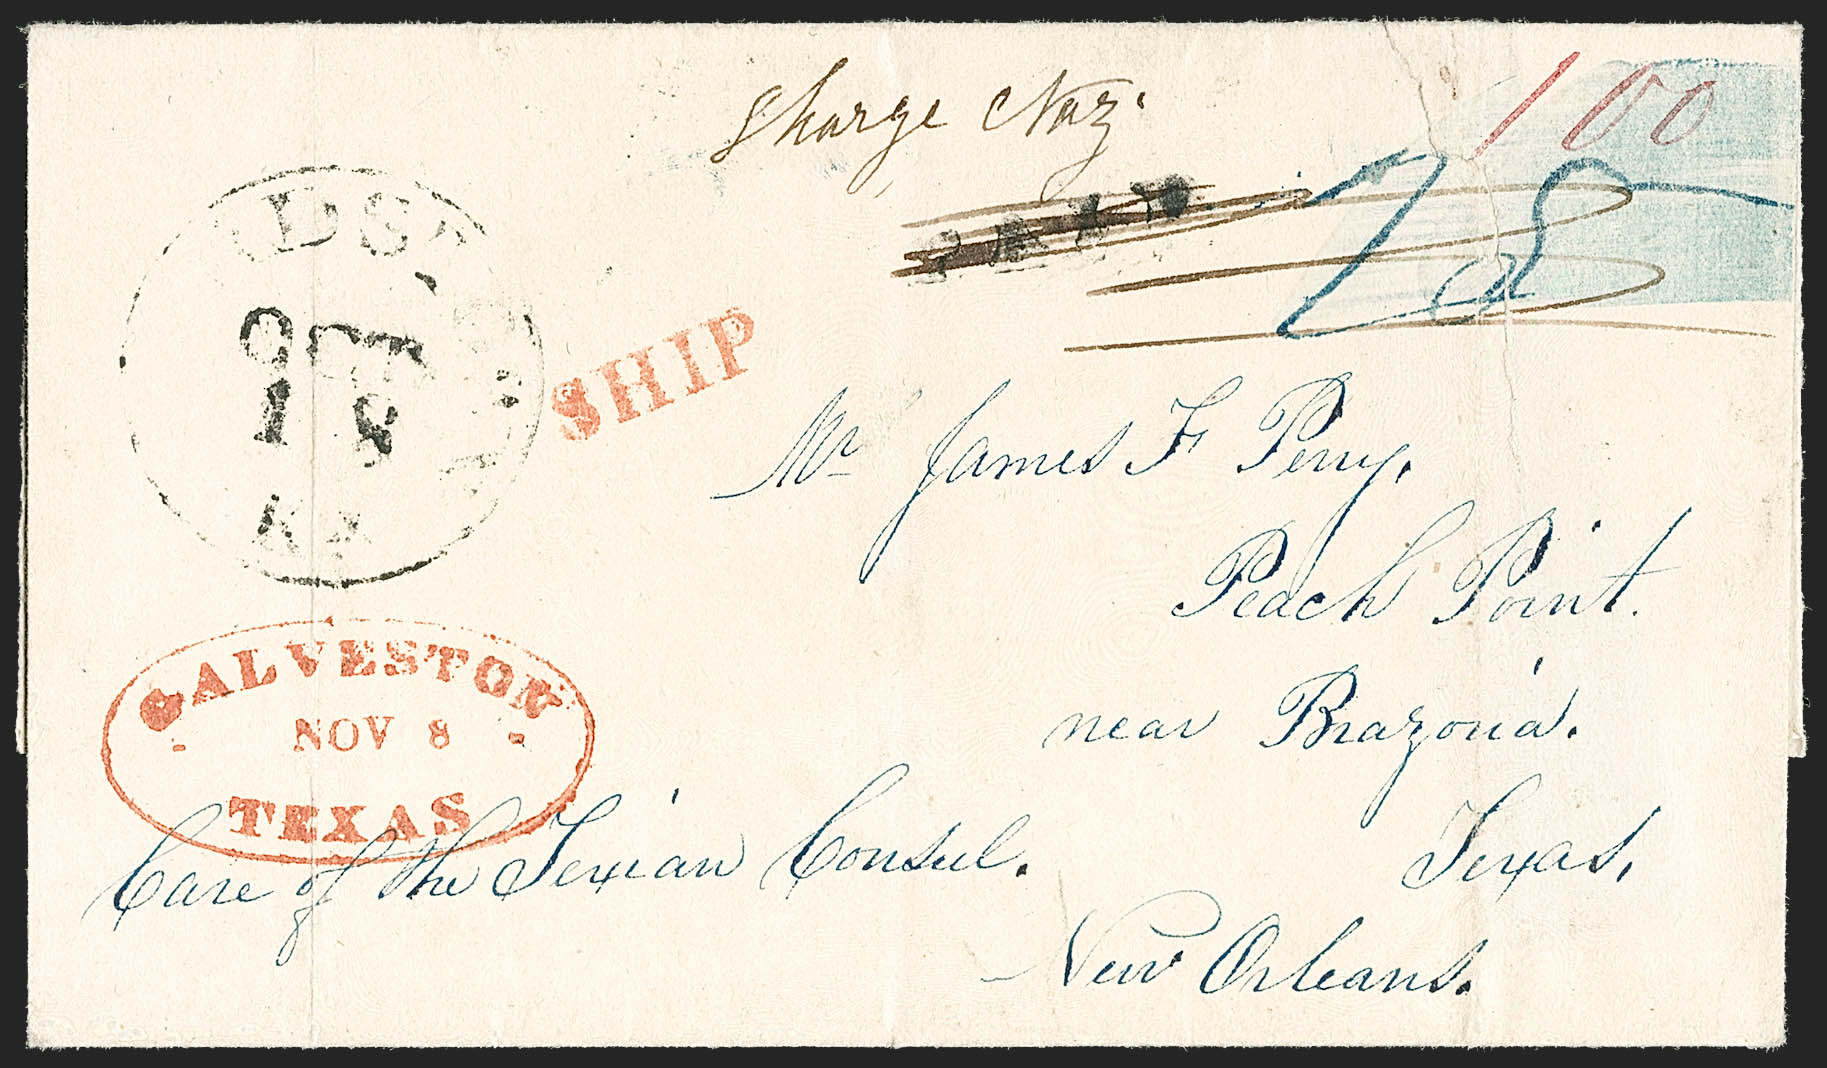 Charge Naz.
100
PAID
75
OCT
18
KY
SHIP
Mr James F Perry.
Peach Point.
near Brazoria.
Texas.
GALVESTON
NOV 8
TEXAS
Care of the Texian Consul.
New Orleans.